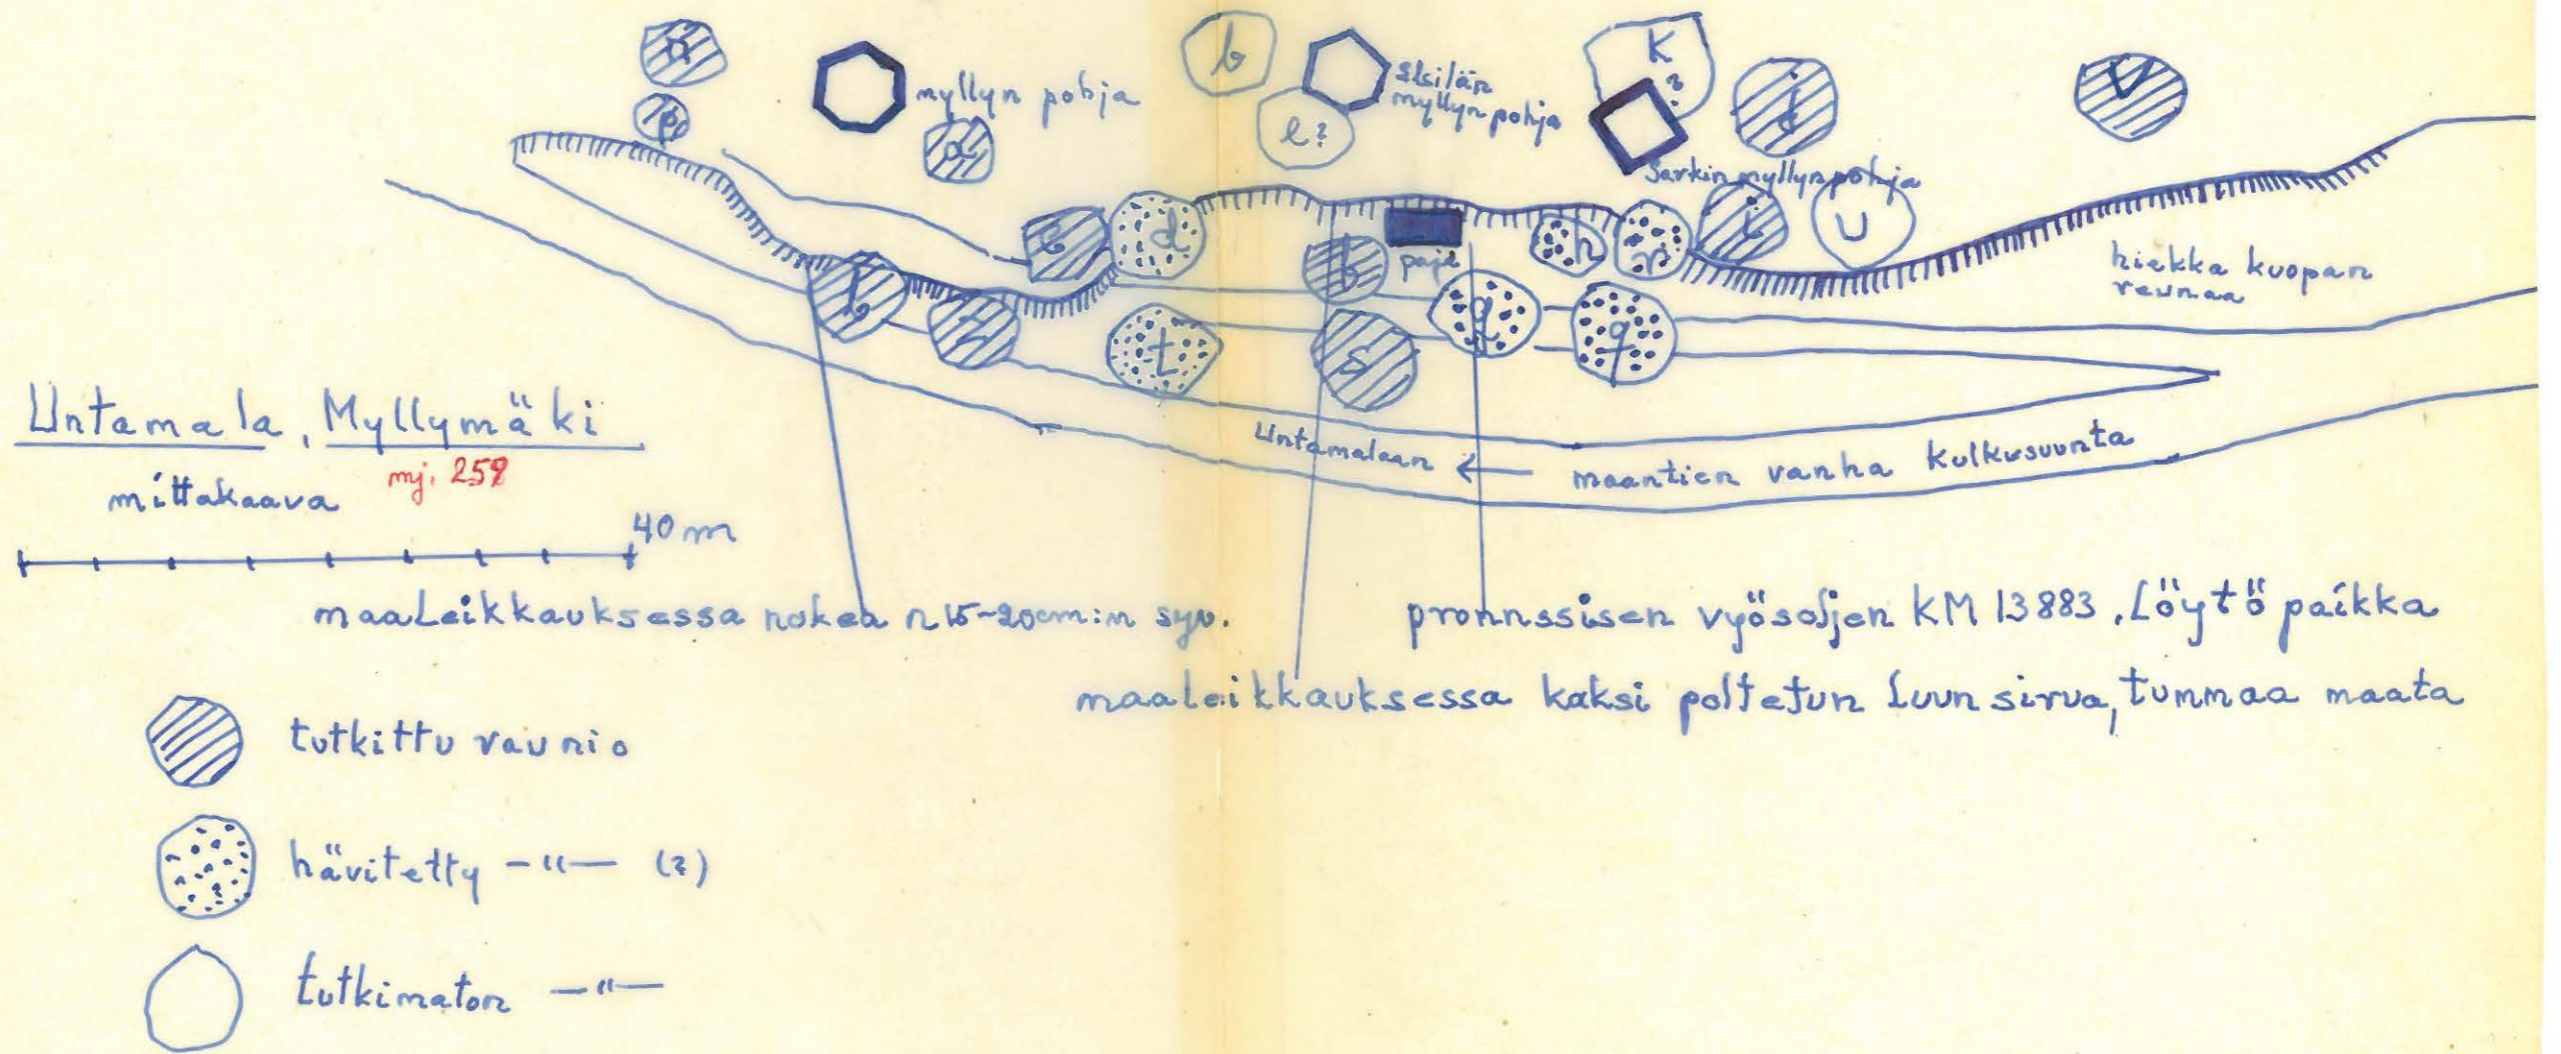 b
K
?
V
p
myllyn pohja
a
e?
myllynpohja
Sarkin myllynpohja
c
d
h
r
i
U
b
paja
g
q
t
s
hiekka kuopan
reunaa
Untamala, Myllymäki
mj. 259
mittakaava
40 m
Untamalaan ← maantien vanha kulkusuunta
maaleikkauksessa nokea n 15-20cm:n syv.
pronnssisen vyösoljen KM 13883, Löytöpaikka
maaleikkauksessa kaksi poltetun luun sirua, tummaa maata
tutkittu raunio
hävitetty -"- (?)
tutkimaton -"-